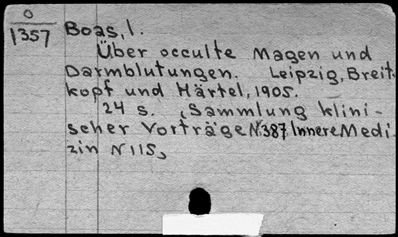 O
1357
Boas, I.
Über occulte Magen und
Darmblutungen. Leipzig, Breit-
kopf und Härtel, 1905.
24 s. (Sammlung klini-
scher Vorträge N.387 Innere Medi-
zin N 115)